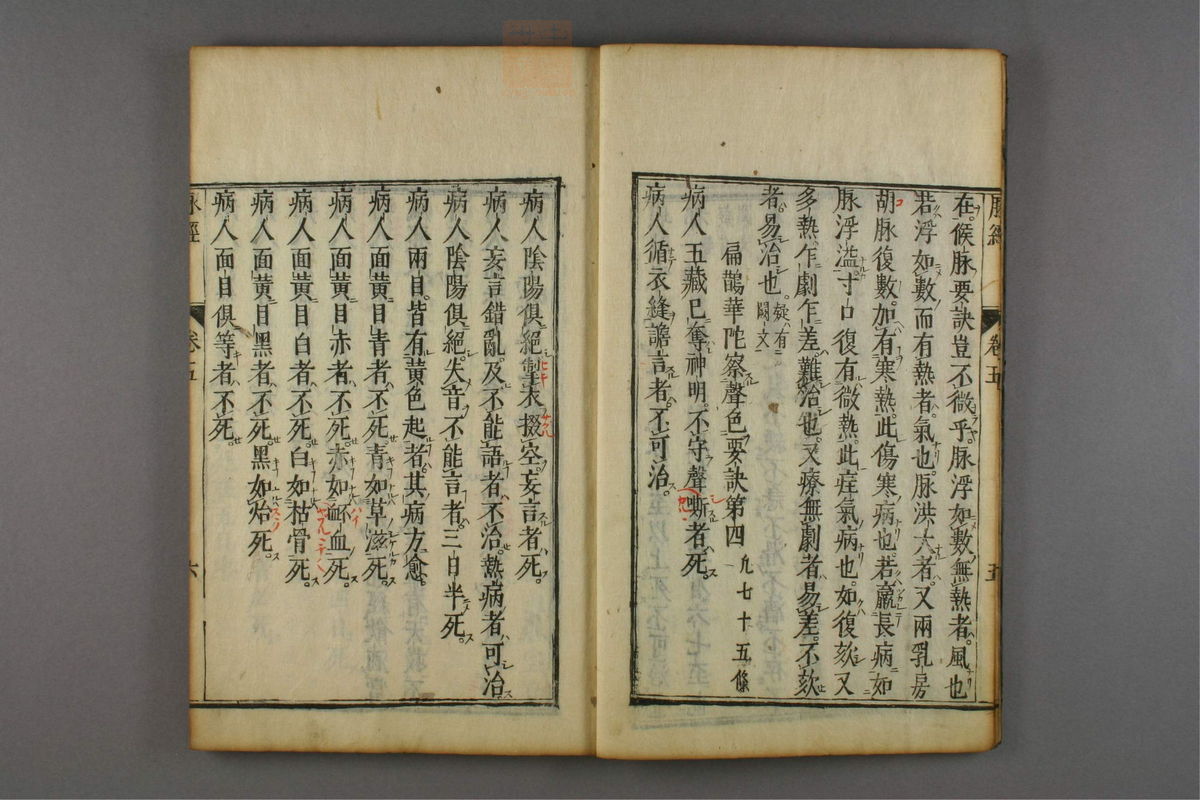 脉經 卷五 五
在候脉要訣豈不微乎脉浮如數無熱者風也
若浮如數而有熱者氣也脉洪大者又兩乳房
胡脉復數加有寒熱此傷寒病也若羸長病如
脉浮溢寸口復有微熱此疰氣病也如復欬又
多熱乍劇乍差難治也又療無劇者易差不欬
者易治也疑有闕文
扁鵲華陀察聲色要訣第四 凡七十五條
病人五藏已奪神明不守聲嘶者死
病人循衣縫譫言者不可治
病人陰陽俱絶掣衣掇空妄言者死
病人妄言錯亂及不能語者不治熱病者可治
病人陰陽俱絶失音不能言者三日半死
病人兩目皆有黃色起者其病方愈
病人面黃目青者不死青如草滋死
病人面黃目赤者不死赤如衃血死
病人面黃目白者不死白如枯骨死
病人面黃目黑者不死黑如炲死
病人面目俱等者不死
脉經 卷五 六